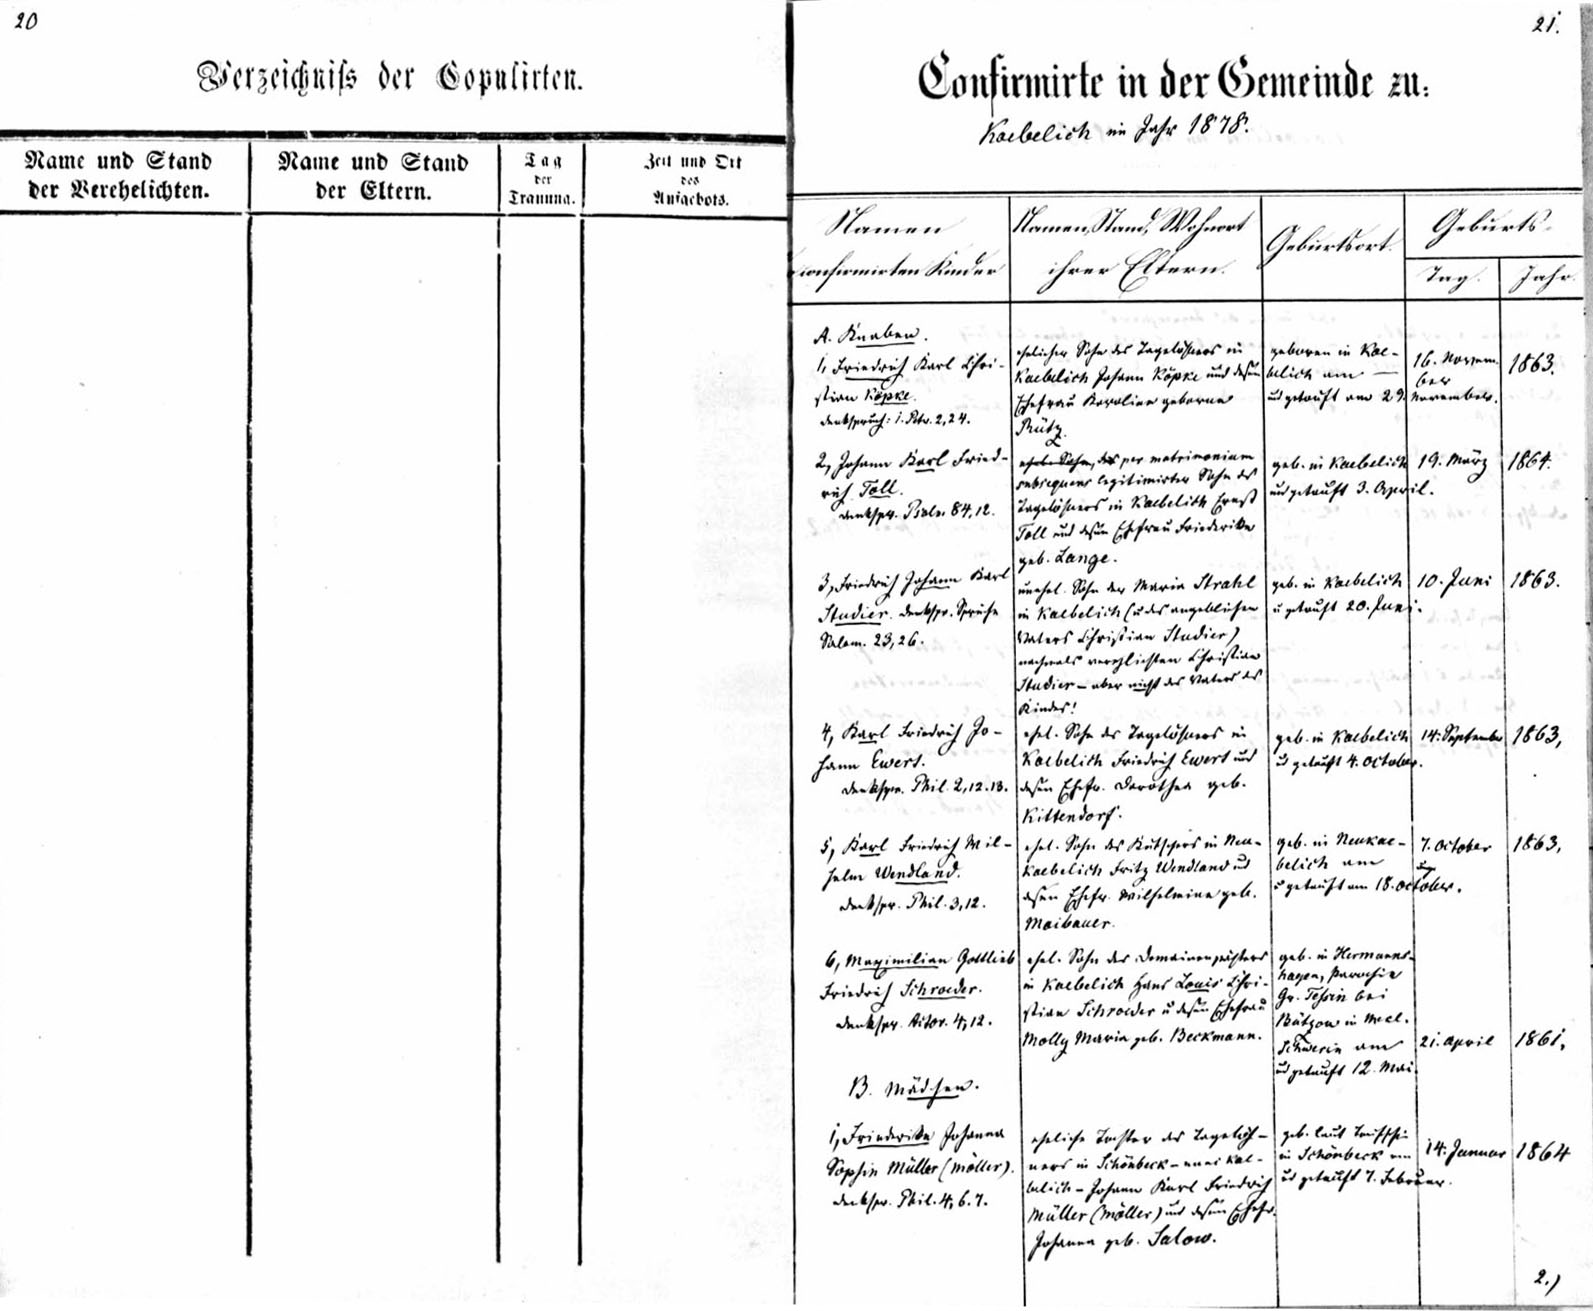 20
Verzeichniss der Copulirten.
Name und Stand
der Verehelichten.
Name und Stand
der Eltern.
Tag
der
Trauung.
Zeit und Ort
des
Aufgebots.
21.
Confirmirte in der Gemeinde zu:
Kaebelich im Jahr 1878.
Namen
confirmirten Kinder
Namen, Stand, Wohnort
ihrer Eltern.
Geburtsort.
Geburts-
Tag.
Jahr.
A. Knaben.
1, Friedrich Karl Chri-
stian Köpke.
denkspruch: 1. Petr. 2, 24.
ehelicher Sohn des Tagelöhners in
Kaebelich Johann Köpke und dessen
Ehefrau Karoline geborene
Rütz.
geboren in Kae-
belich am
und getauft am 29. November.
16. Novem-
ber
1863.
2, Johann Karl Fried-
rich Toll.
denkspr. Psalm 84, 12.
ehel. Sohn, des per matrimonium
subsequens legitimirter Sohn des
Tagelöhners in Kaebelich Ernst
Toll und dessen Ehefrau Friederike
geb. Lange.
geb. in Kaebelich
und getauft 3. April.
19. März
1864.
3, Friedrich Johann Karl
Studier. denkspr. Sprüche
Salom. 23, 26.
unehel. Sohn der Maria Strahl
in Kaebelich (u des angeblichen
Vaters Christian Studier)
nachmals verehlichten Christian
Studier – aber nicht des Vaters des
Kindes!
geb. in Kaebelich
u getauft 20. Juni.
10. Juni
1863.
4, Karl Friedrich Jo-
hann Ewert.
denkspr. Phil. 2, 12. 13.
ehel. Sohn des Tagelöhners in
Kaebelich Friedrich Ewert und
dessen Ehefr. Dorothea geb.
Kittendorf.
geb. in Kaebelich
und getauft 4. October.
14. September
1863,
5, Karl Friedrich Wil-
helm Wendland.
denkspr. Phil. 3, 12.
ehel. Sohn des Kutschers in Neu-
kaebelich Fritz Wendland und
dessen Ehefr. Wilhelmine geb.
Maibauer.
geb. in Neukae-
belich am
u getauft am 18. October.
7. October
1863,
6, Maximilian Gottlieb
Friedrich Schroeder.
denkspr. 4, 12.
ehel. Sohn des Domainenpächters
in Kaebelich Hans Louis Chri-
stian Schroeder u dessen Ehefrau
Molly Maria geb. Beckmann.
geb. in Hermanns-
hagen, Parochie
Gr. Tessin bei
Bützow in Mecl.
Schwerin am
und getauft 12. Mai.
21. April
1861,
B. Mädchen.
1, Friederike Johanna
Sophie Müller (Möller).
denkspr. Phil. 4, 6. 7.
eheliche Tochter des Tagelöh-
ners in Schönbeck – Kae-
belich – Johann Karl Friedrich
Müller (Möller) und dessen Ehefr.
Johanna geb. Salow.
geb. laut Taufschein
in Schönbeck am
und getauft 7. Februar.
14. Januar
1864
2.)